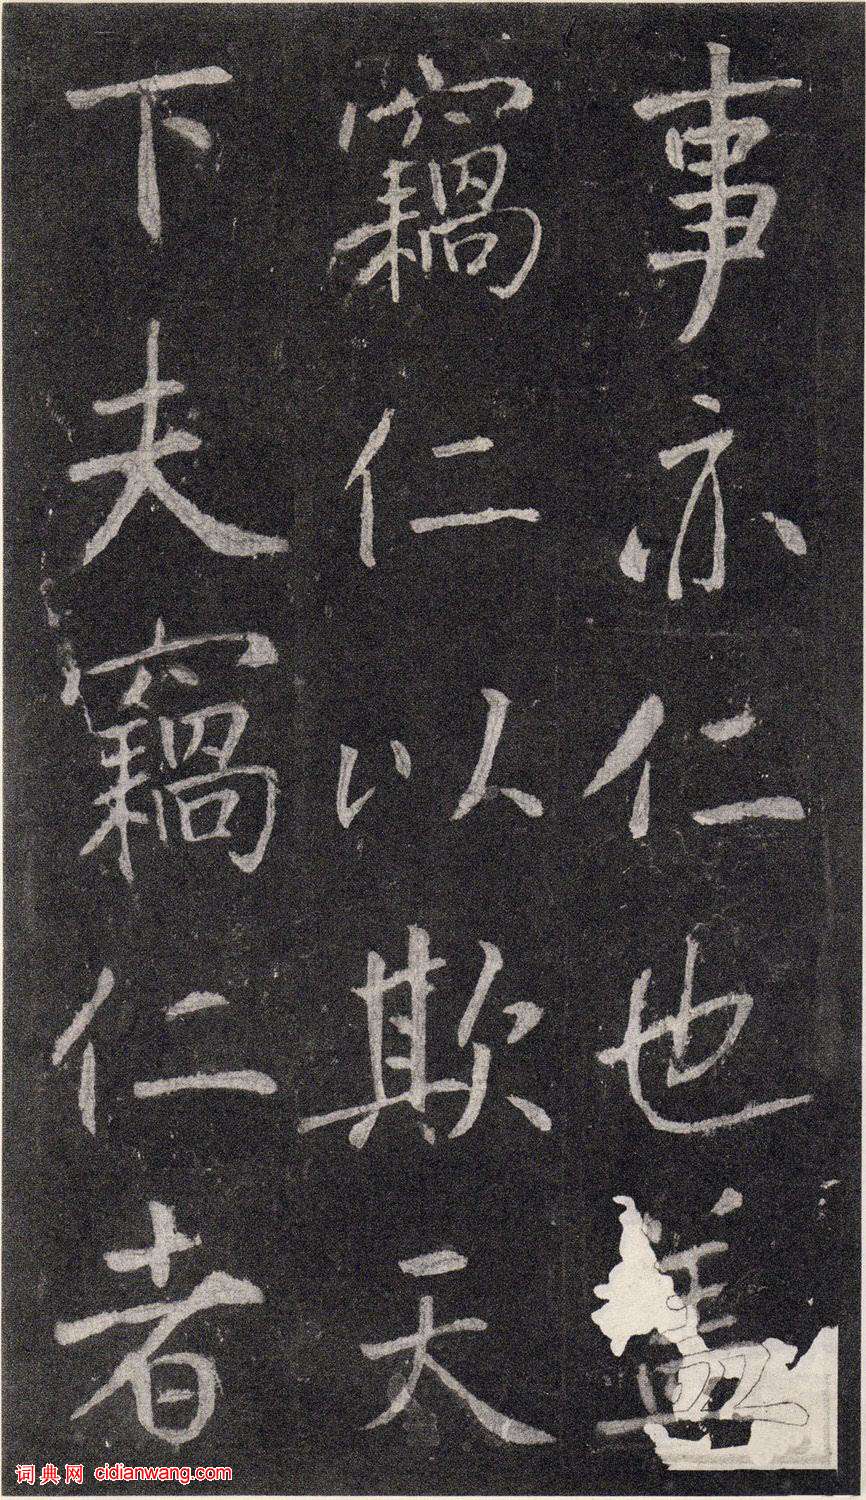 事亦仁也盖
竊仁以欺天
下夫竊仁者
词典网 cidianwang.com